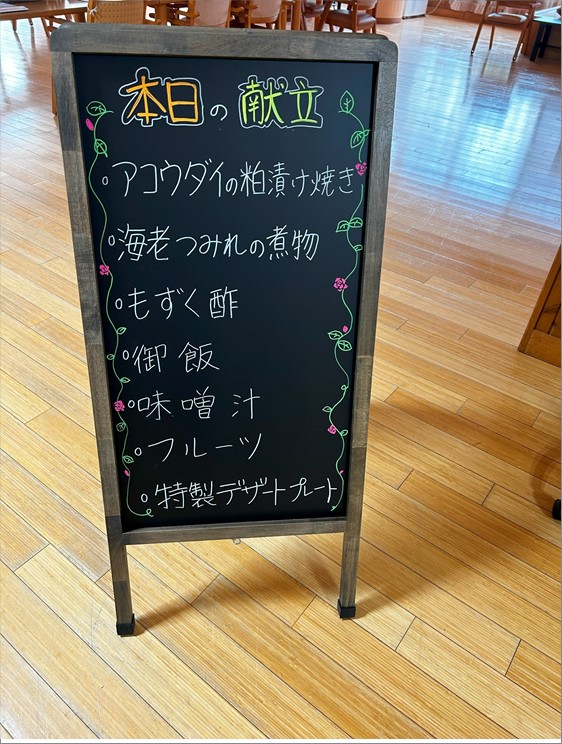 本日の献立
○アコウダイの粕漬け焼き
○海老つみれの煮物
○もずく酢
○御飯
○味噌汁
○フルーツ
○特製デザートプレート